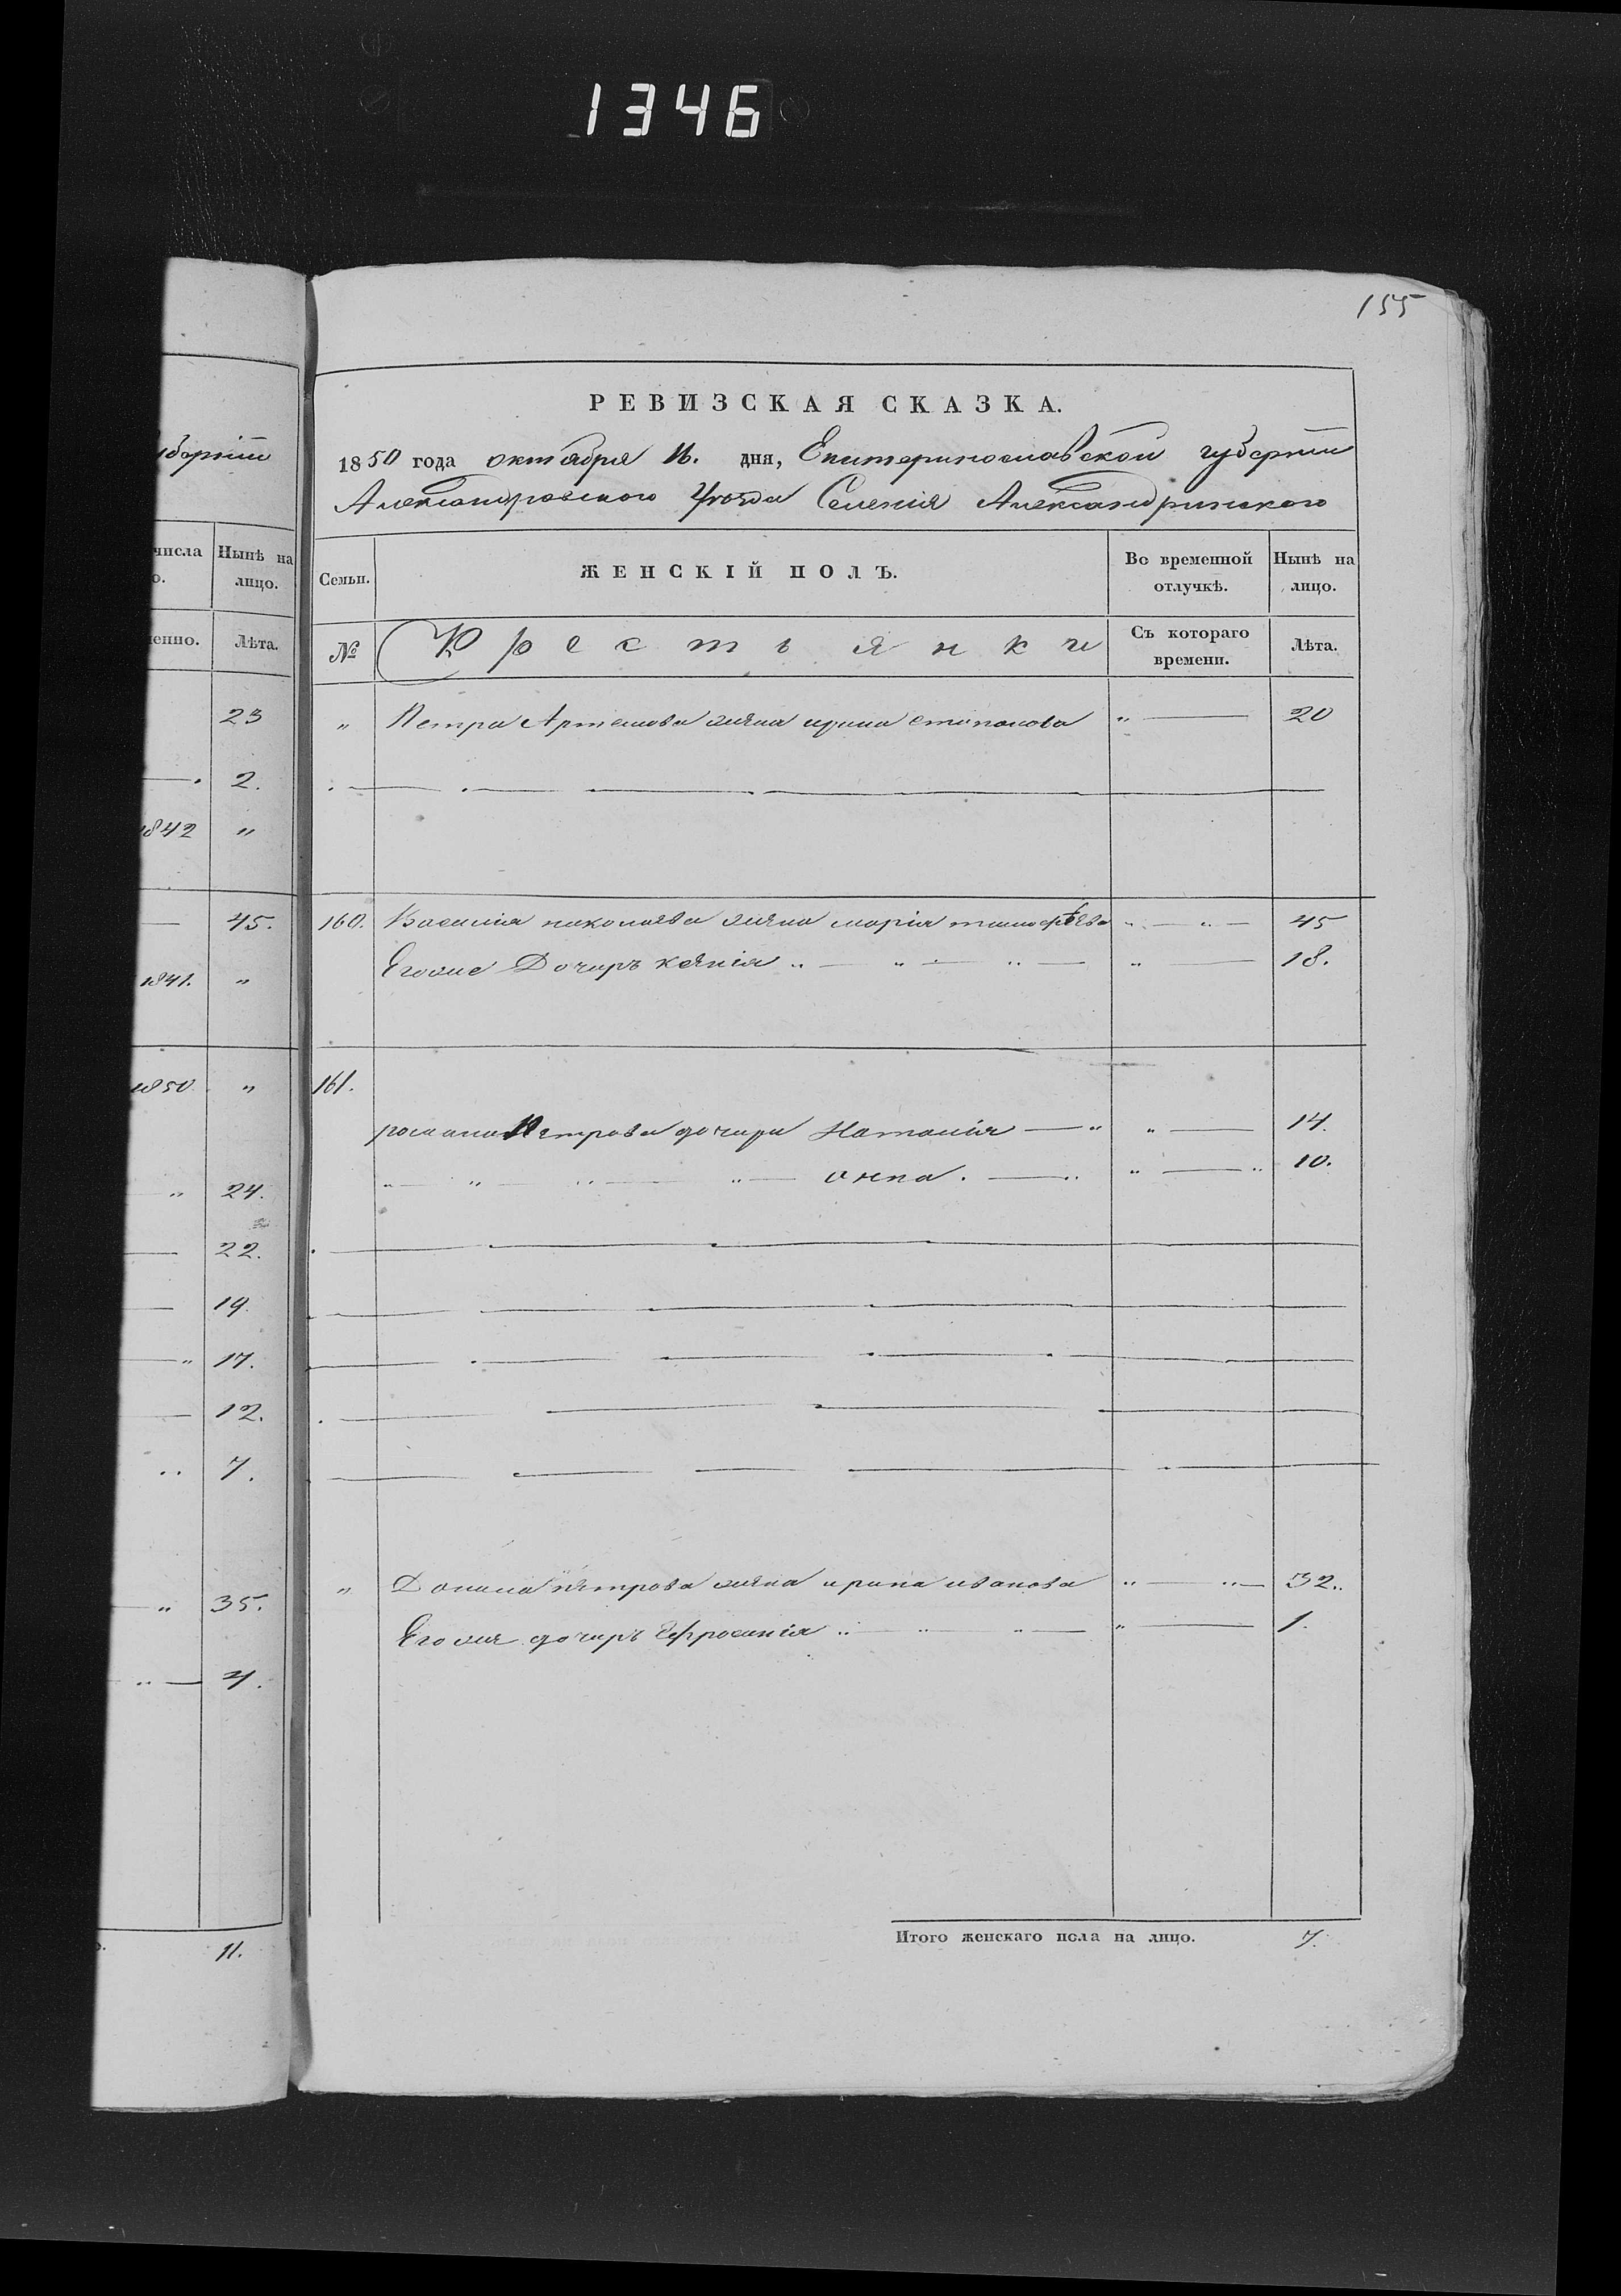 1346
155
РЕВИЗСКАЯ СКАЗКА.
губерніи
1850 года октября 16. дня, Екатеринославской губерніи
Александровского Уезда Селенія Александринского
числа
о.
Нынѣ на
лицо.
Семьи.
ЖЕНСКІЙ ПОЛЪ.
Во временной
отлучкѣ.
Нынѣ на
лицо.
менно.
Лѣта.
№
Крестьянки
Съ котораго
времени.
Лѣта.
23 " Петра Артемова жена ирина степанова " — 20
— 2.
1842 "
— 45. 160. Василия николаева жена марія тимофѣева " — " — 45
Егоже Дочеръ ксенія " — " — " — " — 18.
1841. "
1850. " 161.
романа Петрова дочери Наталія — " " — 14.
" — " — " — " — анна. — " " — " 10.
" 24.
— 22.
— 19.
— " 17.
— 12.
" 7.
— " 35. " Данила петрова жена ирина иванова " — " — 32.
Егоже дочеръ Ефросинія " — " — " — " — 1.
" — 4.
11.
Итого женскаго пола на лицо. 7.